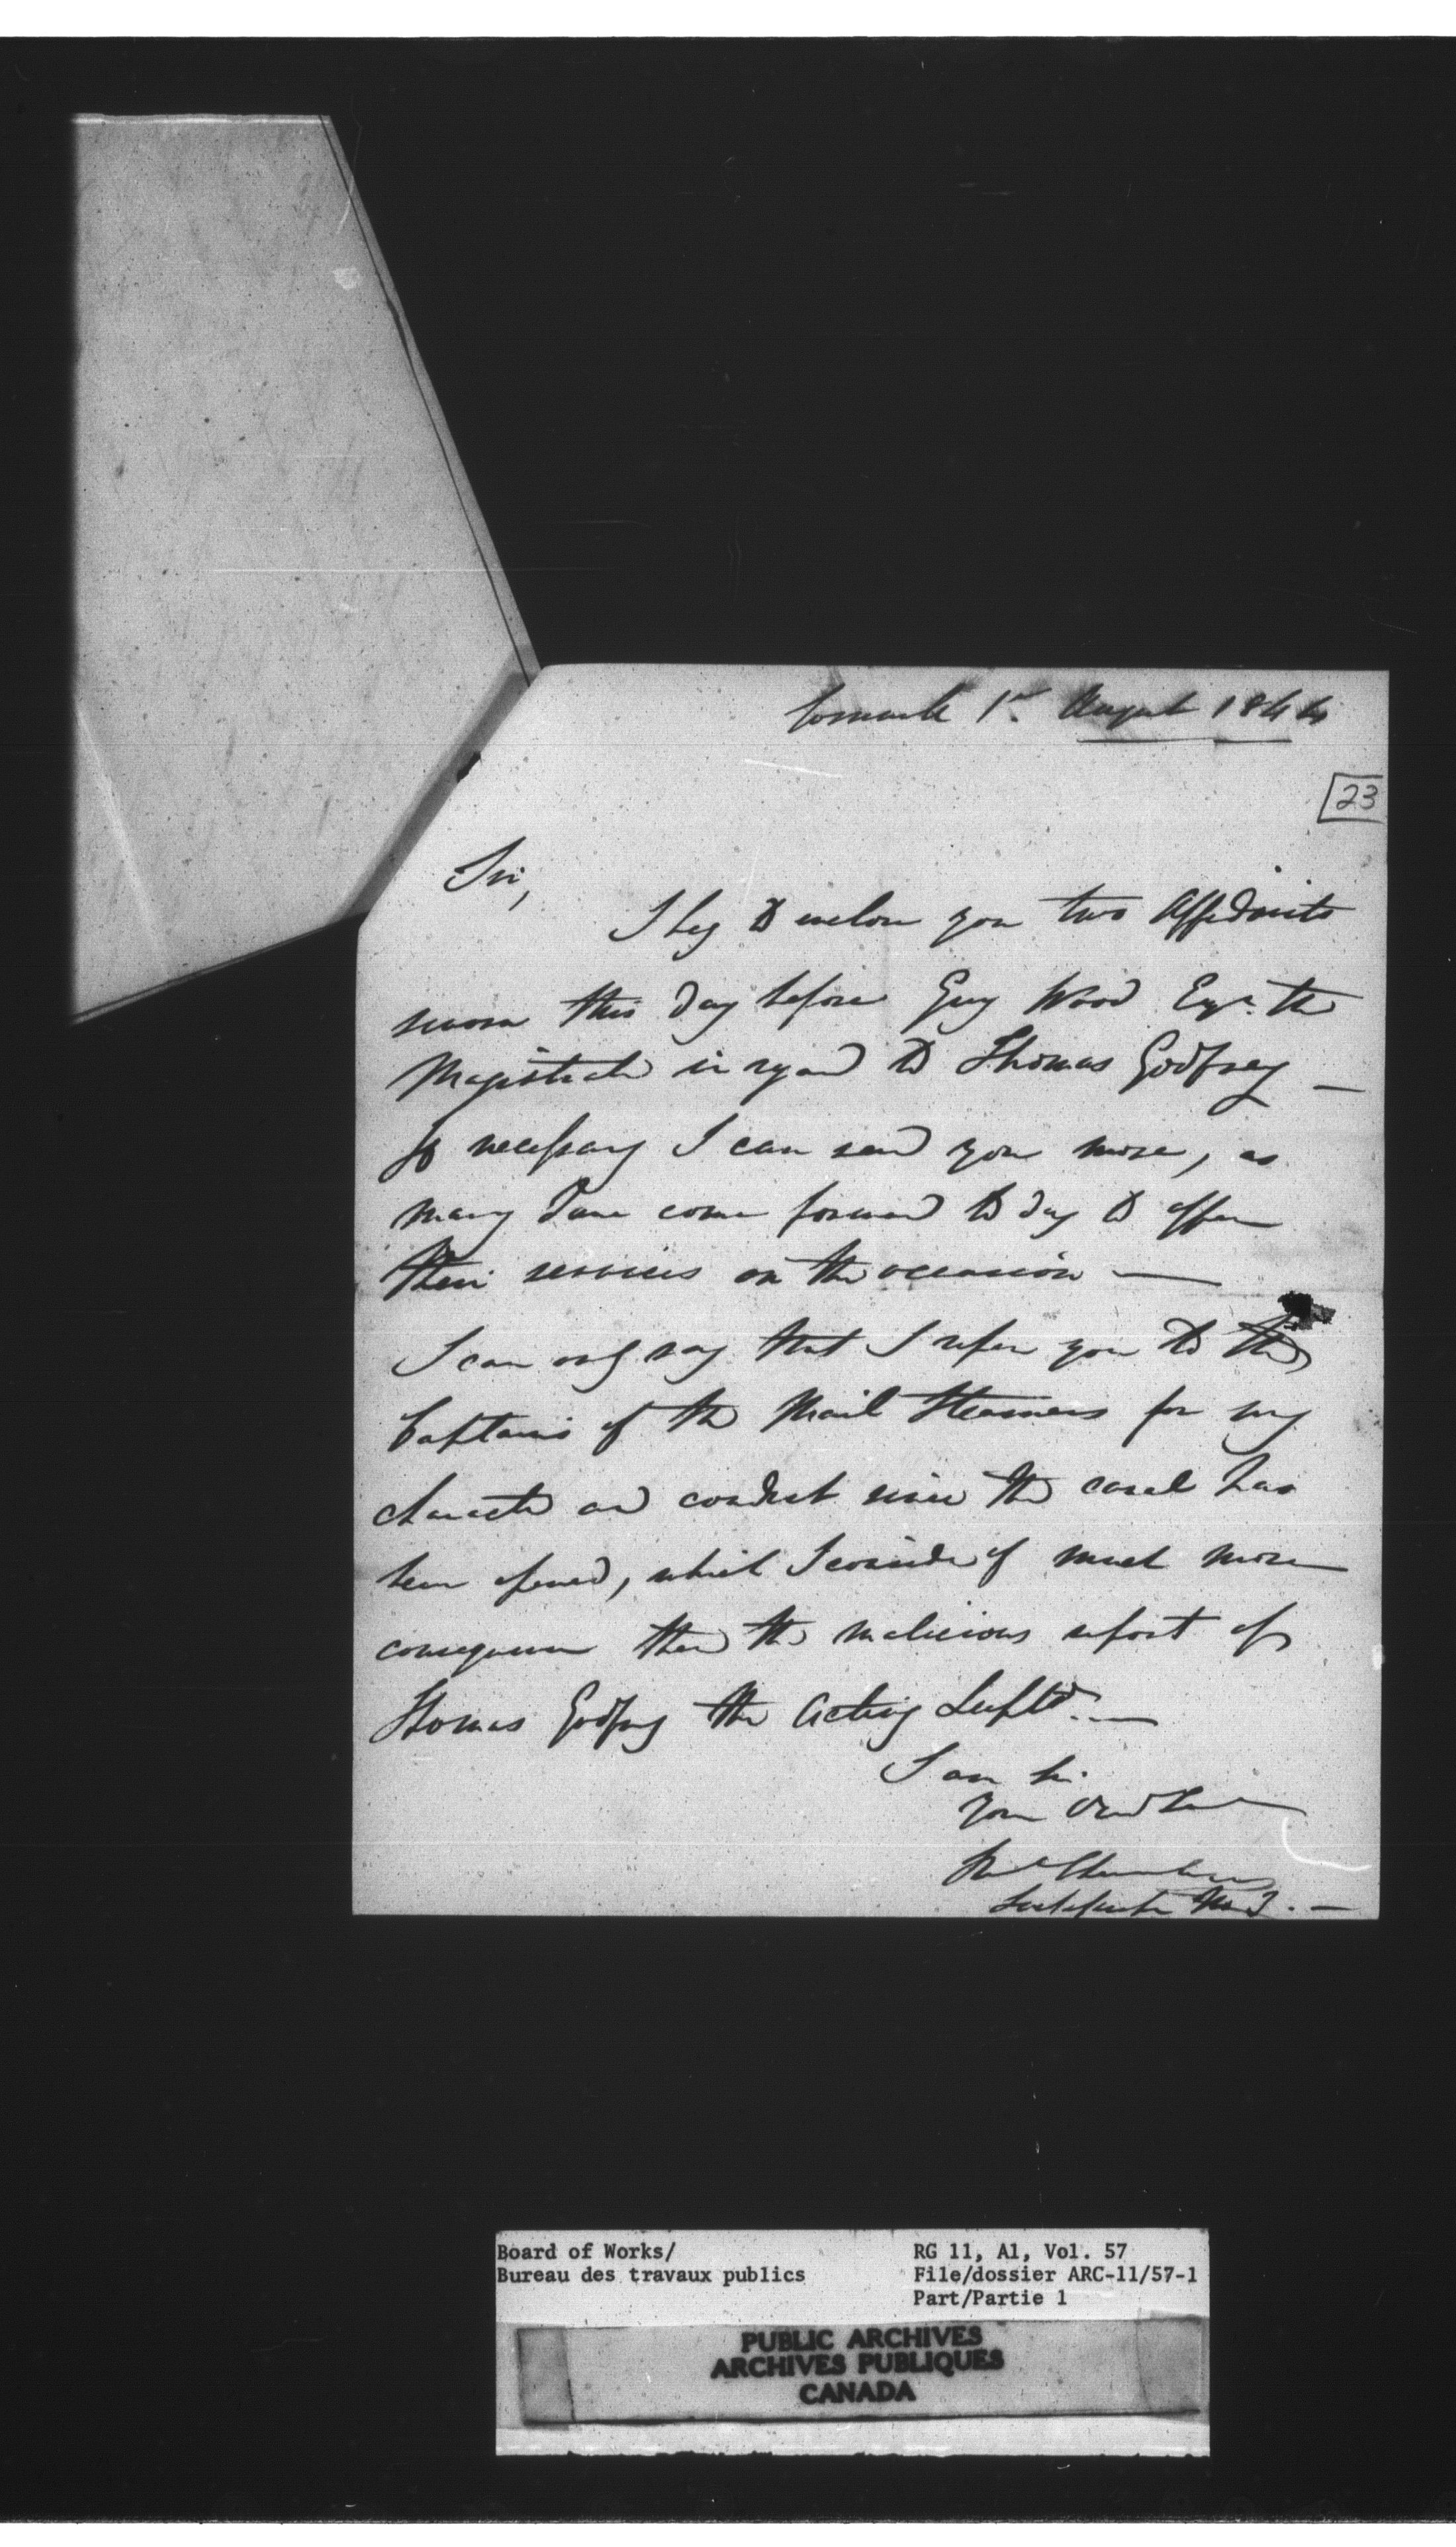 Cornwall 1st August 1844
23
Sir,
I beg to enclose you two Affidavits
sworn this day before Guy Wood Esqr. the
Magistrate in regard to Thomas Godfrey —
If necessary I can send you more, as
many have come forward to day to offer
their services on the occasion —
I can only say that I refer you to the
Captains of the Mail Steamers for my
character and conduct since the canal has
been opened, which I consider of much more
consequence than the malicious report of
Thomas Godfrey the Acting Suptd. —
I am Sir
Your Obed Servt
Lock No 3. —
Board of Works/
Bureau des travaux publics
RG 11, A1, Vol. 57
File/dossier ARC-11/57-1
Part/Partie 1
PUBLIC ARCHIVES
ARCHIVES PUBLIQUES
CANADA